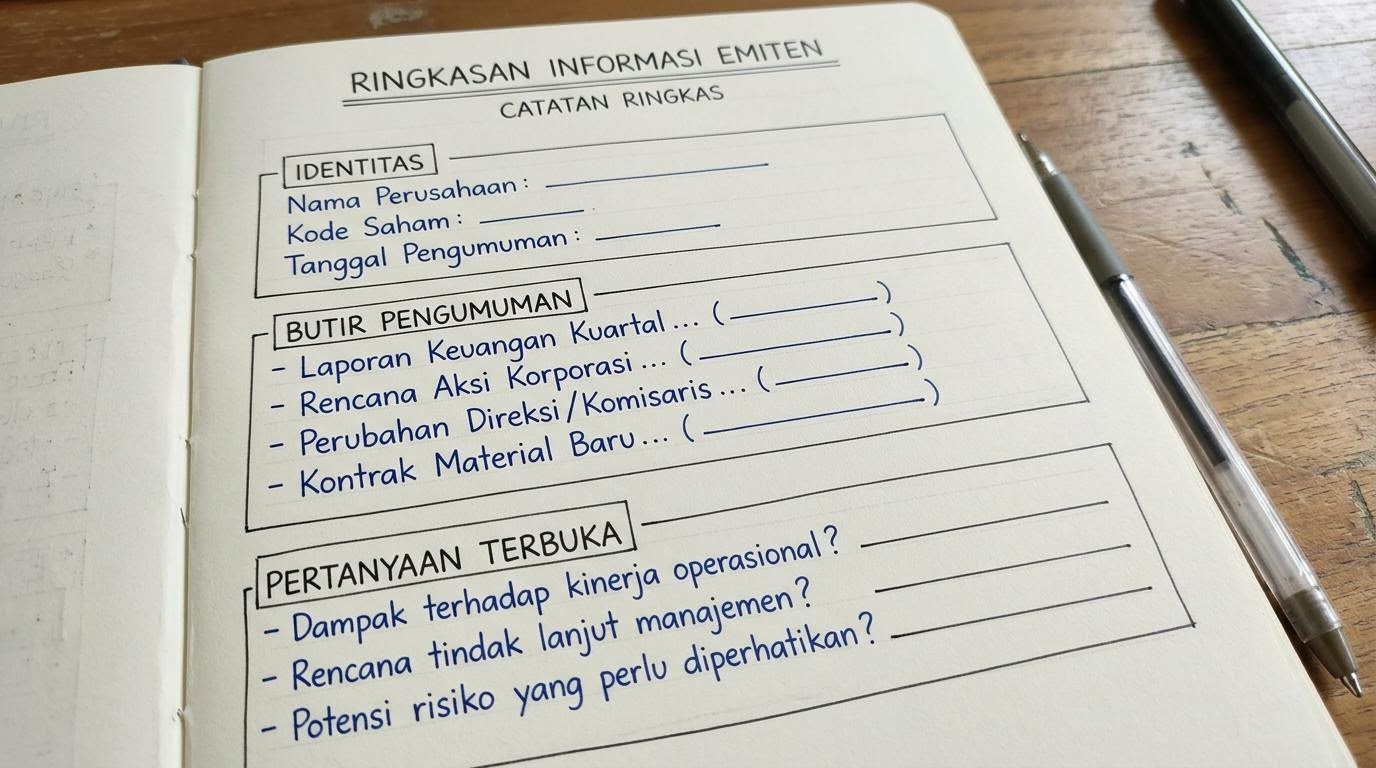 RINGKASAN INFORMASI EMITEN
CATATAN RINGKAS
IDENTITAS
Nama Perusahaan : ____________
Kode Saham : ______
Tanggal Pengumuman : _______
BUTIR PENGUMUMAN
- Laporan Keuangan Kuartal ... (________)
- Rencana Aksi Korporasi ... (__________)
- Perubahan Direksi/Komisaris ... (_______)
- Kontrak Material Baru ... (___________)
PERTANYAAN TERBUKA
- Dampak terhadap kinerja operasional? ____________
- Rencana tindak lanjut manajemen? ____________
- Potensi risiko yang perlu diperhatikan? ____________